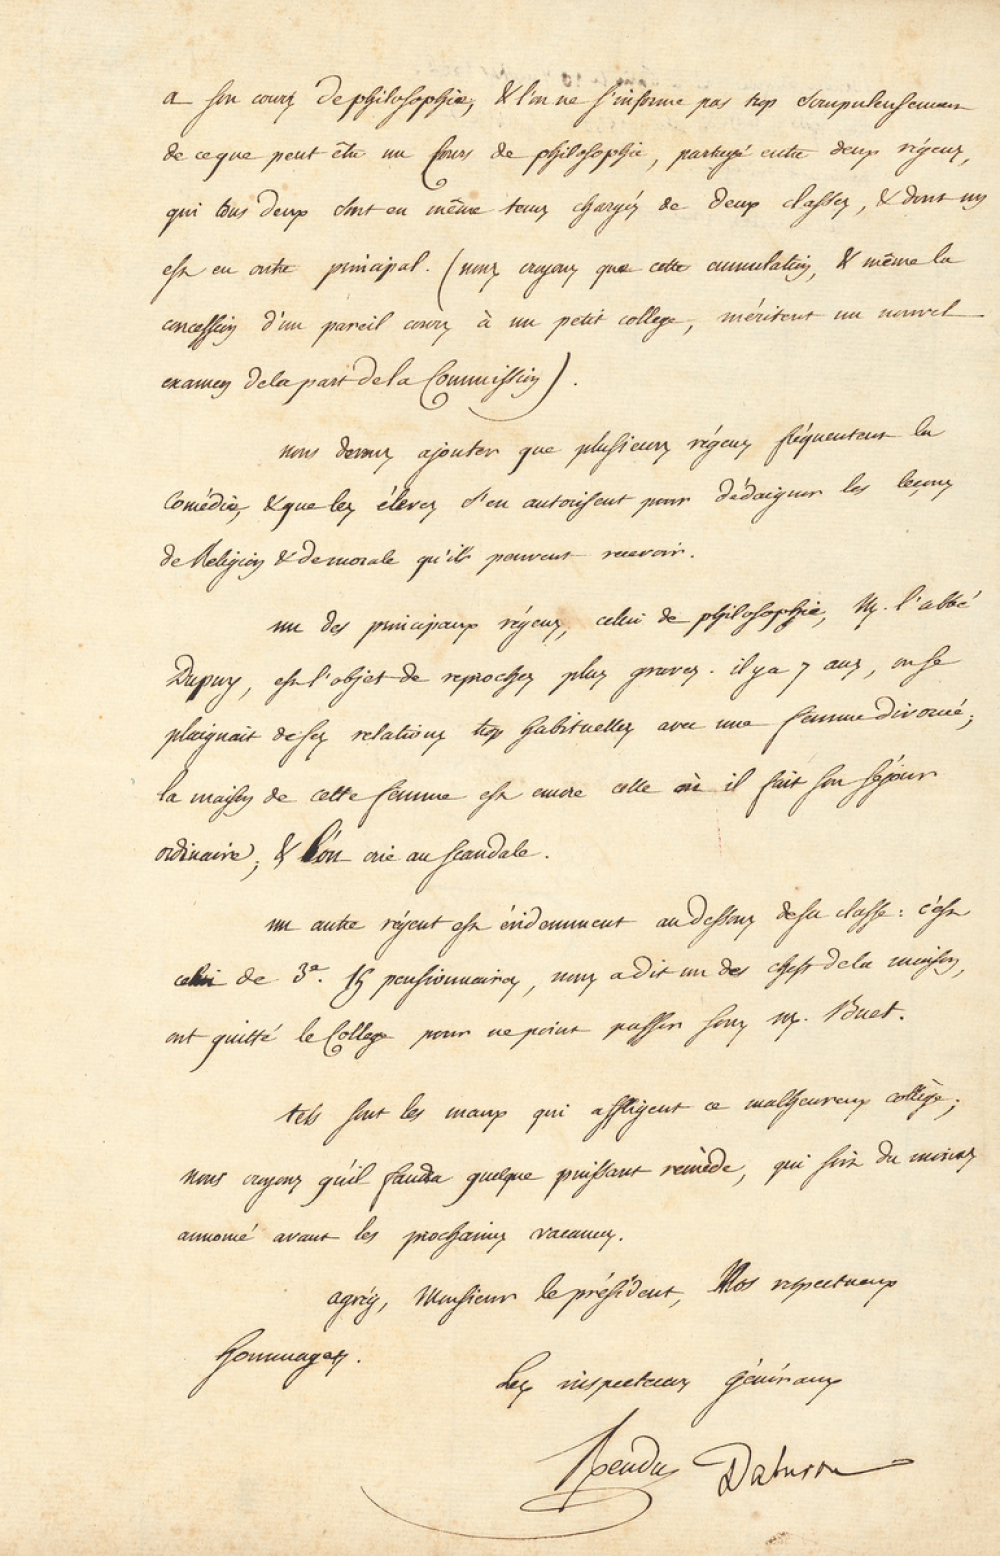 a son cours de philosophie, & l'on ne s'informe pas trop scrupuleusement
de ce que peut être un Cours de philosophie, partagé entre deux régens,
qui tous deux sont en même tems chargés de deux classes, & dont un
est en outre principal. (nous croyons que cette cumulation, & même la
concession d'un pareil cours à un petit college, méritent un nouvel
examen de la part de la Commission).
nous devons ajouter que plusieurs régens fréquentent la
Comédie, & que les élèves s'en autorisent pour dédaigner les leçons
de Religion & de morale qu'ils peuvent recevoir.
un des principaux régens, celui de philosophie, M. l'abbé
Dupuy, est l'objet de reproches plus graves. il y a 7 ans, on se
plaignait de ses relations trop habituelles avec une femme divorcée;
la maison de cette femme est encore celle où il fait son séjour
ordinaire; & l'on crie au scandale.
un autre régent est évidemment au dessous de sa classe: c'est
celui de 3e. 15 pensionnaires, nous a dit un des chefs de la maison,
ont quitté le College pour ne point passer sous M. Buet.
tels sont les maux qui affligent ce malheureux collège;
nous croyons qu'il faudra quelque puissant remède, qui soit du moins
annoncé avant les prochaines vacances.
agréez, Monsieur le président, Nos respectueux
hommages.
Les inspecteurs généraux
Rendu Daburon